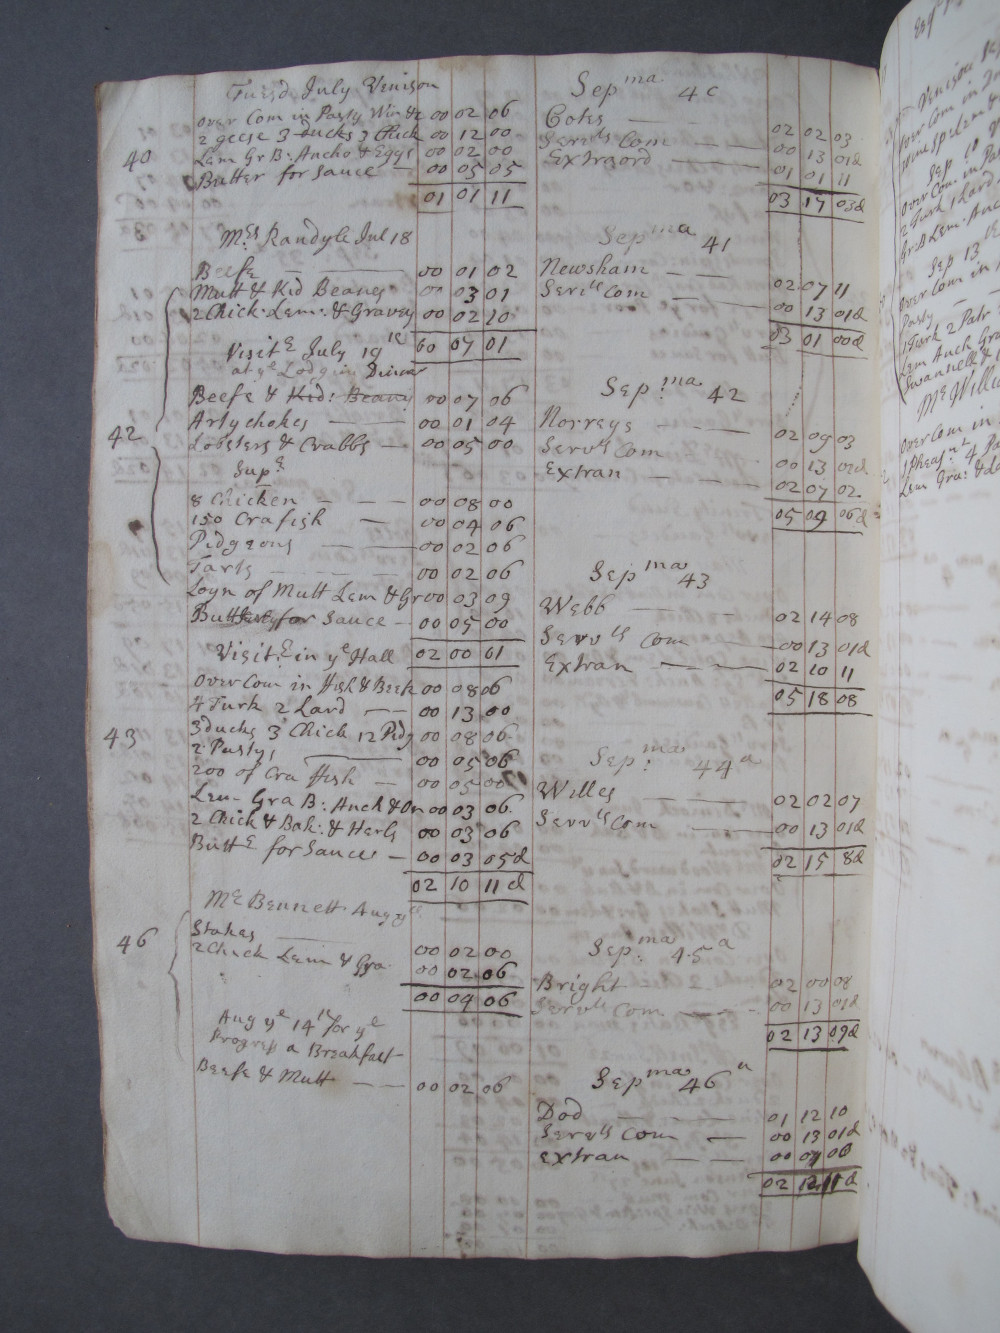 Tuesd July Venison
over Com in Pasty Wine & 00 02 06
2 geese 3 ducks 3 Chick 00 12 00
40
Lem Gr B: Ancho & Eggs 00 02 00
Butter for Sauce 00 05 05
01 01 11
Mrs Randyle Jul 18
Beefe 00 01 02
Mutt & Kid Beanes 00 03 01
2 Chick: Lem: & Gravey 00 02 10
00 07 01
Visitr July 19th
at ye Lodgin Diner
Beefe & Kid: Beanes 00 07 06
Artychokes 00 01 04
42
Lobsters & Crabbs 00 05 00
Supr
8 Chicken 00 08 00
150 Crafish 00 04 06
Pidgeons 00 02 06
Tarts 00 02 06
Loyn of Mutt Lem & Gr 00 03 09
Butt for Sauce 00 05 00
02 00 01
Visitr in ye Hall
over Com in fish & Beek 00 08 06
4 Turk 2 Lard 00 13 00
43
3 ducks 3 Chick 12 Pidg 00 08 06
2 Pastys 00 05 06
200 of Cra ffish 00 05 00
Lem Gra B: Anch & On 00 03 06
2 Chick & Bak: & Herbs 00 03 06
Buttr for Sauce 00 03 05d
02 10 11 d
Mr Bennett Aug
46
Stakes 00 02 00
2 Chick Lem & Gra 00 02 06
00 04 06
Aug ye 14th for ye
Progress a Breakfast
Beefe & Mutt 00 02 06
Sepma 40
Cotes 02 02 03
Servts Com 00 13 01d
Extraord 01 01 11
03 17 03d
Sepma 41
Newsham 02 07 11
Servts Com 00 13 01d
03 01 00d
Sep:ma 42
Norreys 02 09 03
Servts Com 00 13 01d
Extran 02 07 02
05 09 06d
Sepma 43
Webb 02 14 08
Servts Com 00 13 01d
Extran 02 10 11
05 18 08
Sep:ma 44a
Willes 02 02 07
Servts Com 00 13 01d
02 15 8d
Sep:ma 45a
Bright 02 00 08
Servts Com 00 13 01d
02 13 09d
Sepma 46a
Dod 01 12 10
Servts Com 00 13 01d
Extran
02 12 11d
Venison
over Com in
Sep
over Com in
2 Turk 1 Lard
Gr B Lem: Anc
Sep 13th
over Com in
Pasty
1 Turk 2 Patr
Lem Anch Gra
Mr Willi
over Com in
Lem Gra: &